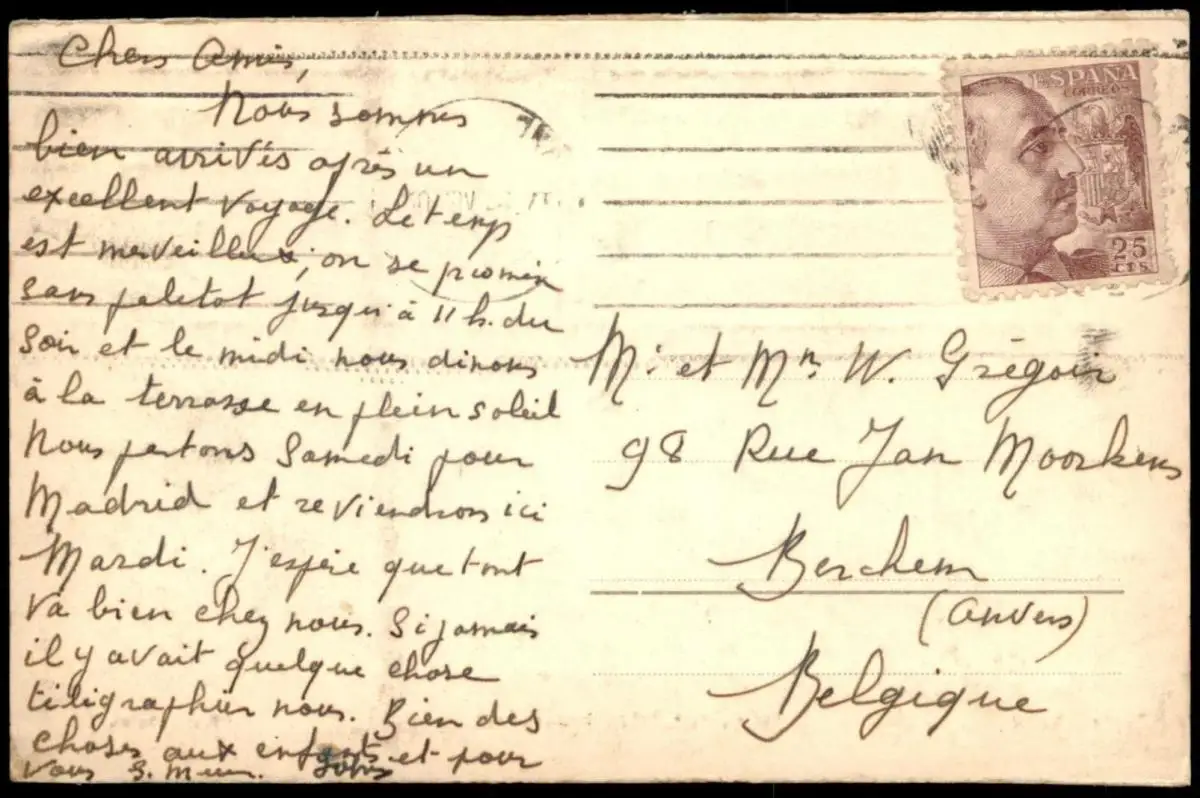 Chers Amis,
Nous sommes
bien arrivés après un
excellent voyage. Le temps
est merveilleux, on se promène
sans paletot jusqu'à 11 h. du
soir et le midi nous dinons
à la terrasse en plein soleil
Nous partons Samedi pour
Madrid et reviendrons ici
Mardi. J'espère que tout
va bien chez nous. Si jamais
il y avait quelque chose
téligraphier nous. Bien des
choses aux enfants et pour
vous
ESPAÑA
CORREOS
25
CTS
Mr et Mme W. Grégoir
98 Rue Jan Moorkens
Berchem
(Anvers)
Belgique